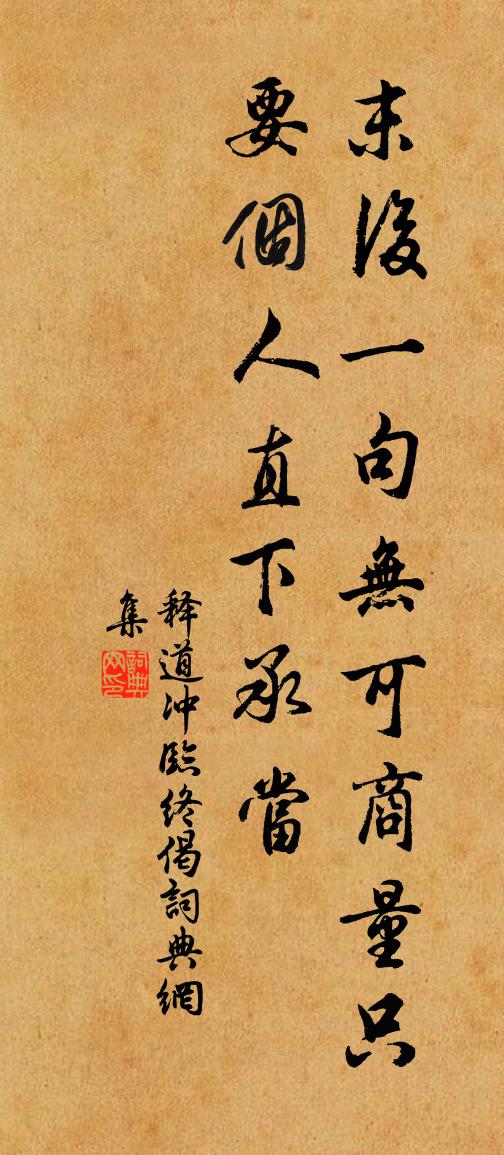 末後一句無可商量只
要個人直下承當
释道冲臨终偈詞典網
集
詞典
网印